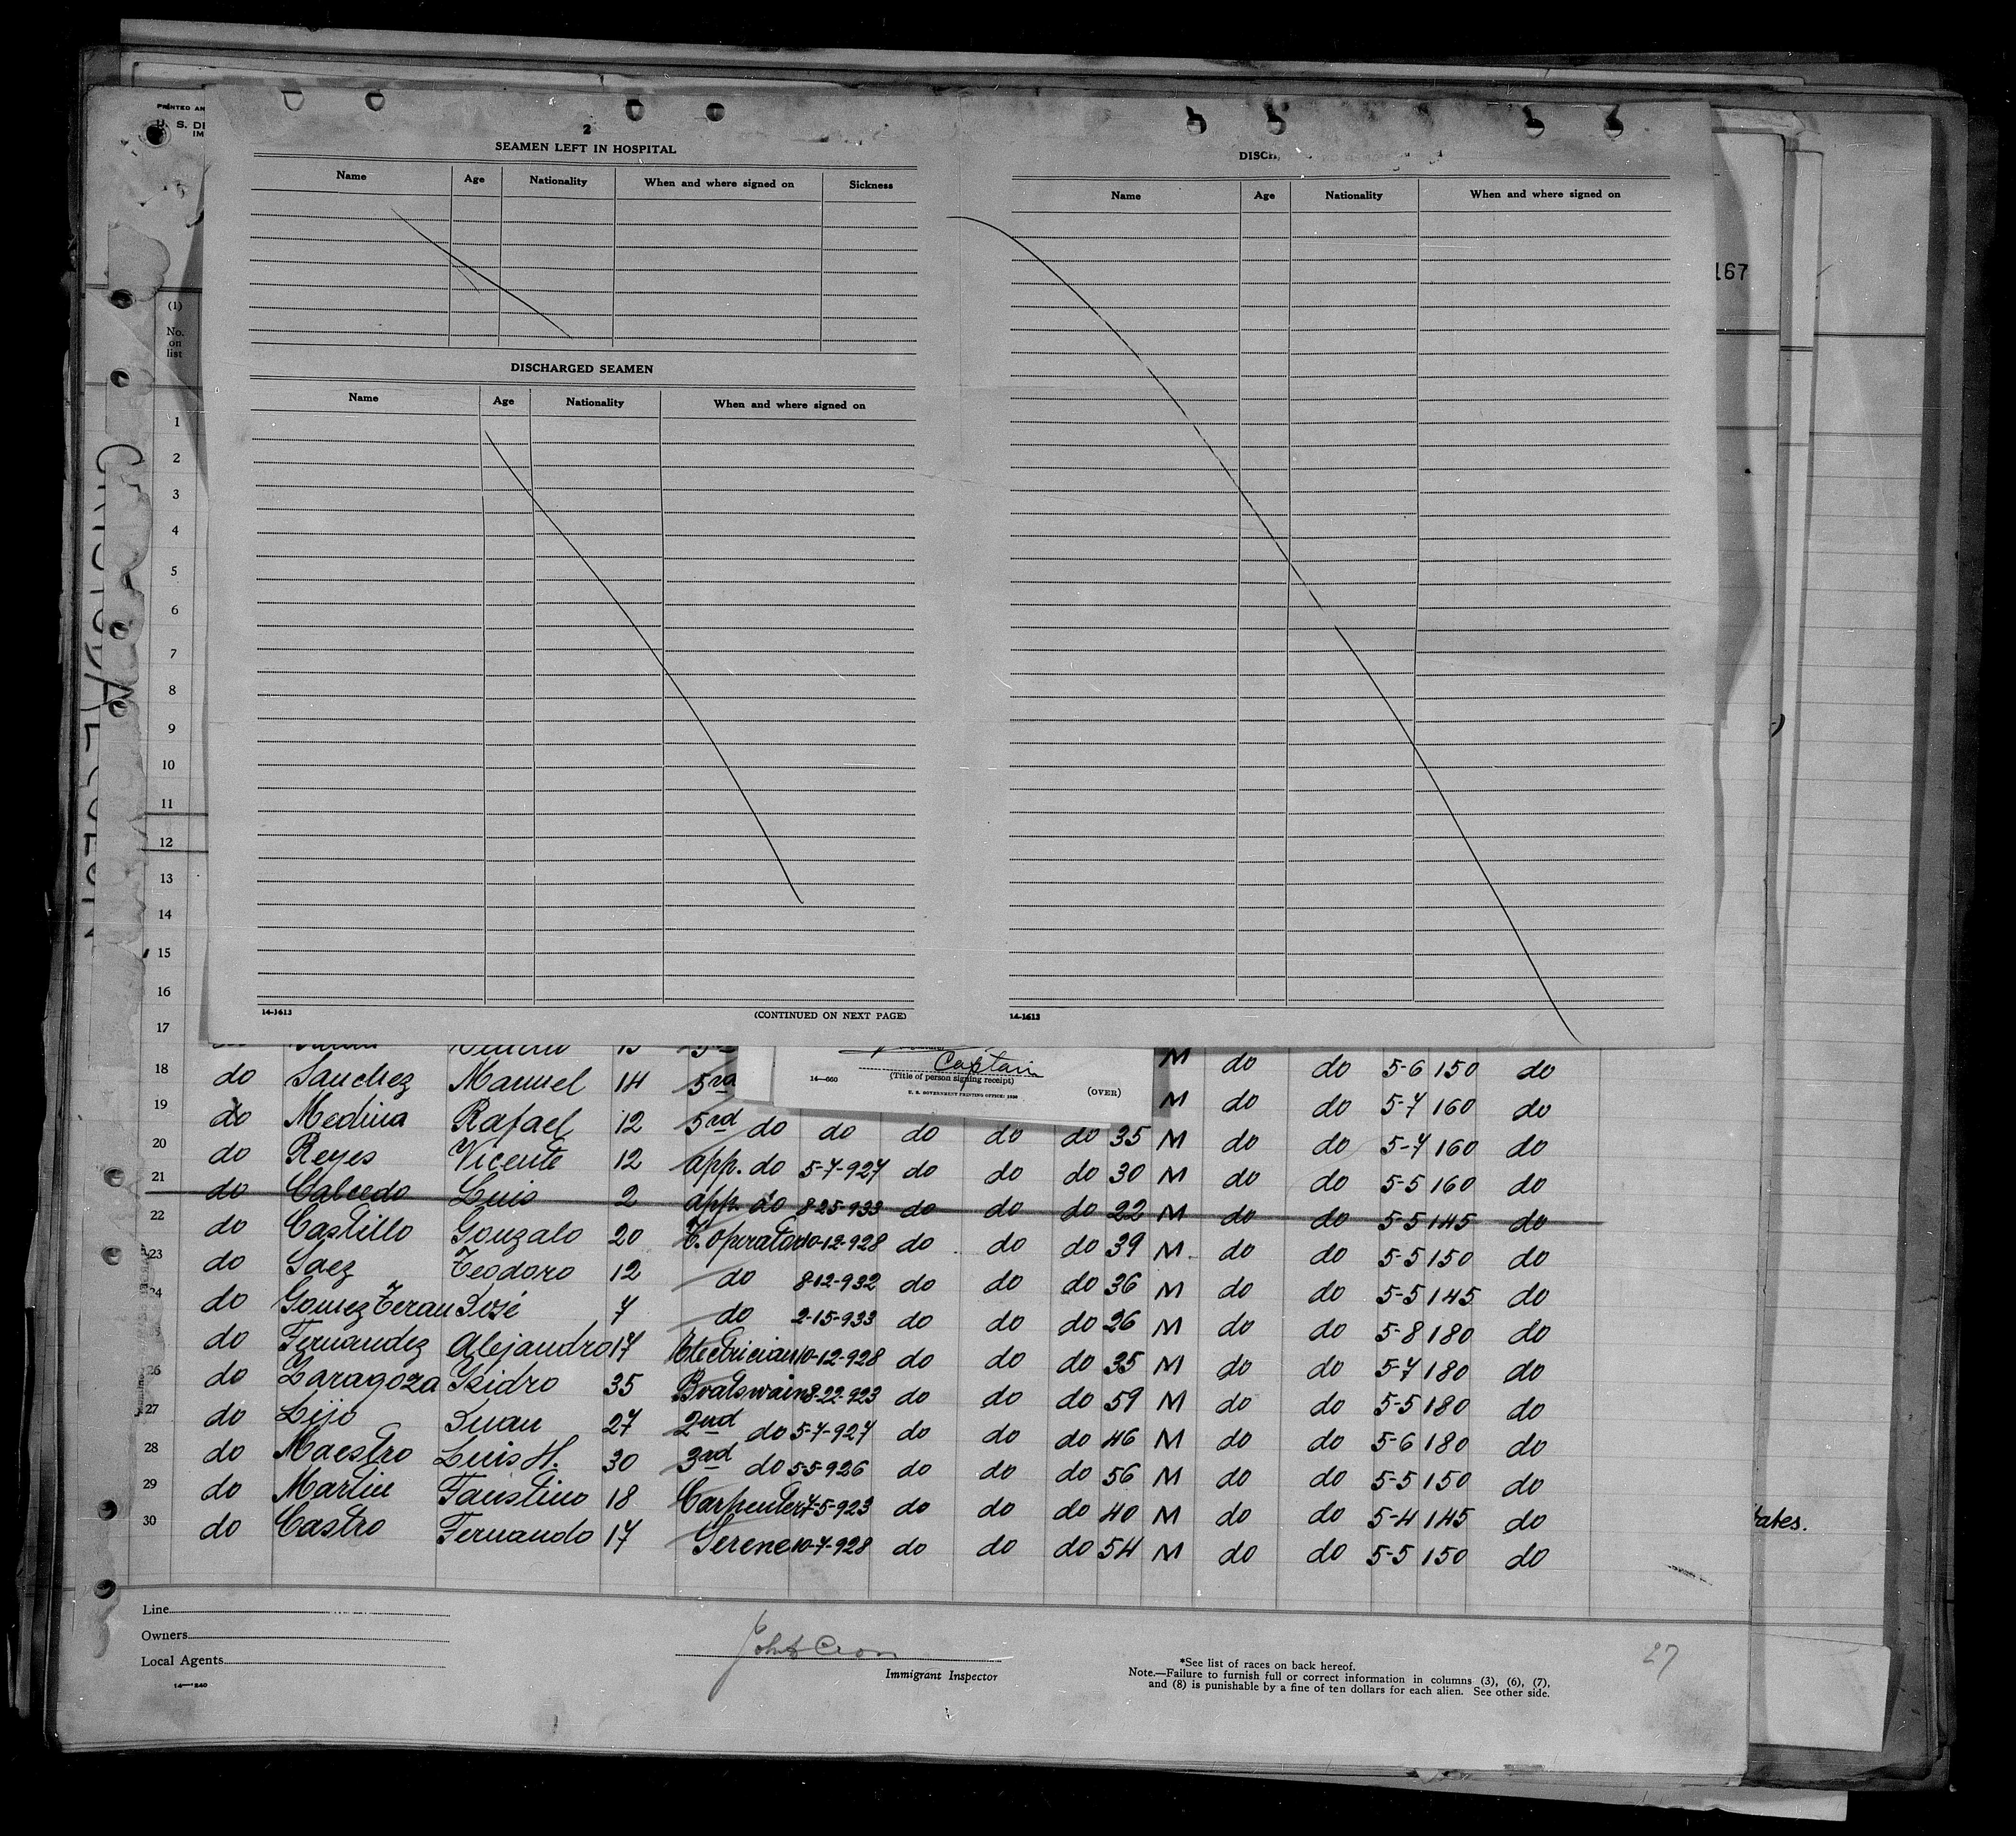 PRINTED AN
U. S. DE
IM
2
SEAMEN LEFT IN HOSPITAL
Name Age Nationality When and where signed on Sickness
DISCHARGED SEAMEN
Name Age Nationality When and where signed on
14-1613 (CONTINUED ON NEXT PAGE)
DISCH
Name Age Nationality When and where signed on
14-1613
167
(1)
No.
on
list
1
2
3
4
5
6
7
8
9
10
11
12
13
14
15
16
17
Captain
14—660 (Title of person signing receipt)
U. S. GOVERNMENT PRINTING OFFICE: 1930 (OVER)
M do do 5-6 150 do
18 do Sanchez Manuel 14 5rd M do do 5-7 160 do
19 do Medina Rafael 12 5rd do do do do do 35 M do do 5-7 160 do
20 do Reyes Vicente 12 app. do 5-7-927 do do do 30 M do do 5-5 160 do
21 do Calcedo Luis 2 app. do 8-25-933 do do do 22 M do do 5-5 145 do
22 do Castillo Gonzalo 20 T. Operator 10-12-928 do do do 39 M do do 5-5 150 do
23 do Saez Teodoro 12 do 8-12-932 do do do 36 M do do 5-5 145 do
24 do Gomez Teran José 7 do 2-15-933 do do do 26 M do do 5-8 180 do
do Fernandez Alejandro 17 Electrician 10-12-928 do do do 35 M do do 5-7 180 do
26 do Zaragoza Isidro 35 Boatswain 8-22-923 do do do 59 M do do 5-5 180 do
27 do Lijo Juan 27 2nd do 5-7-927 do do do 46 M do do 5-6 180 do
28 do Maestro Luis H. 30 3rd do 5-5-926 do do do 56 M do do 5-5 150 do
29 do Martin Faustino 18 Carpenter 7-5-923 do do do 40 M do do 5-4 145 do
30 do Castro Fernando 17 Serene 10-7-928 do do do 54 M do do 5-5 150 do
tates.
Line
Owners
Local Agents
14—1240
Immigrant Inspector
*See list of races on back hereof.
Note.—Failure to furnish full or correct information in columns (3), (6), (7),
and (8) is punishable by a fine of ten dollars for each alien. See other side.
27